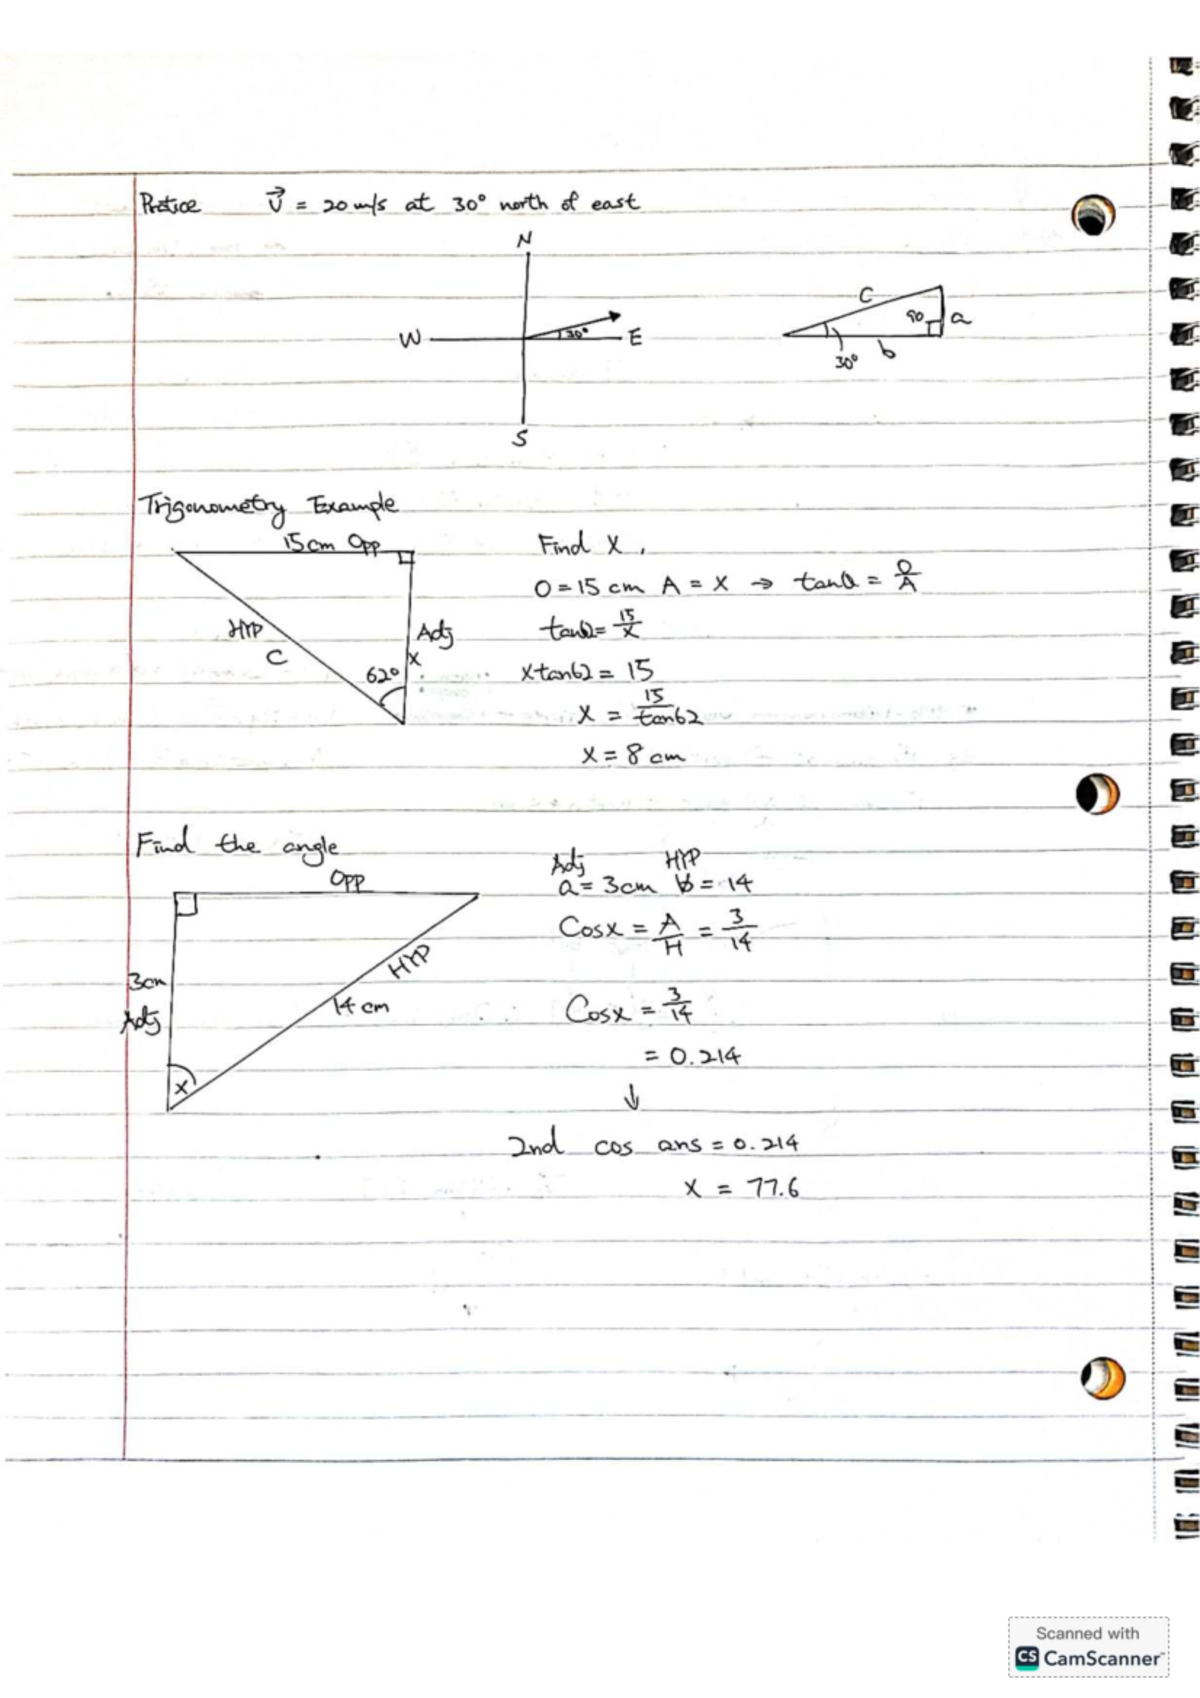 Pratice V⃗ = 20 m/s at 30° north of east
N
W 30° E
S
c
90 a
30° b
Trigonometry Example
15cm Opp
HYP
c
Adj
x
62°
Find x,
O = 15 cm A = x → tanθ = O/A
tanθ = 15/x
xtan62 = 15
x = 15/tan62
x = 8 cm
Find the angle
Opp
3cm
Adj
HYP
14 cm
x
Adj HYP
a = 3cm b = 14
Cosx = A/H = 3/14
Cosx = 3/14
= 0.214
↓
2nd cos ans = 0.214
x = 77.6
Scanned with
CS CamScanner